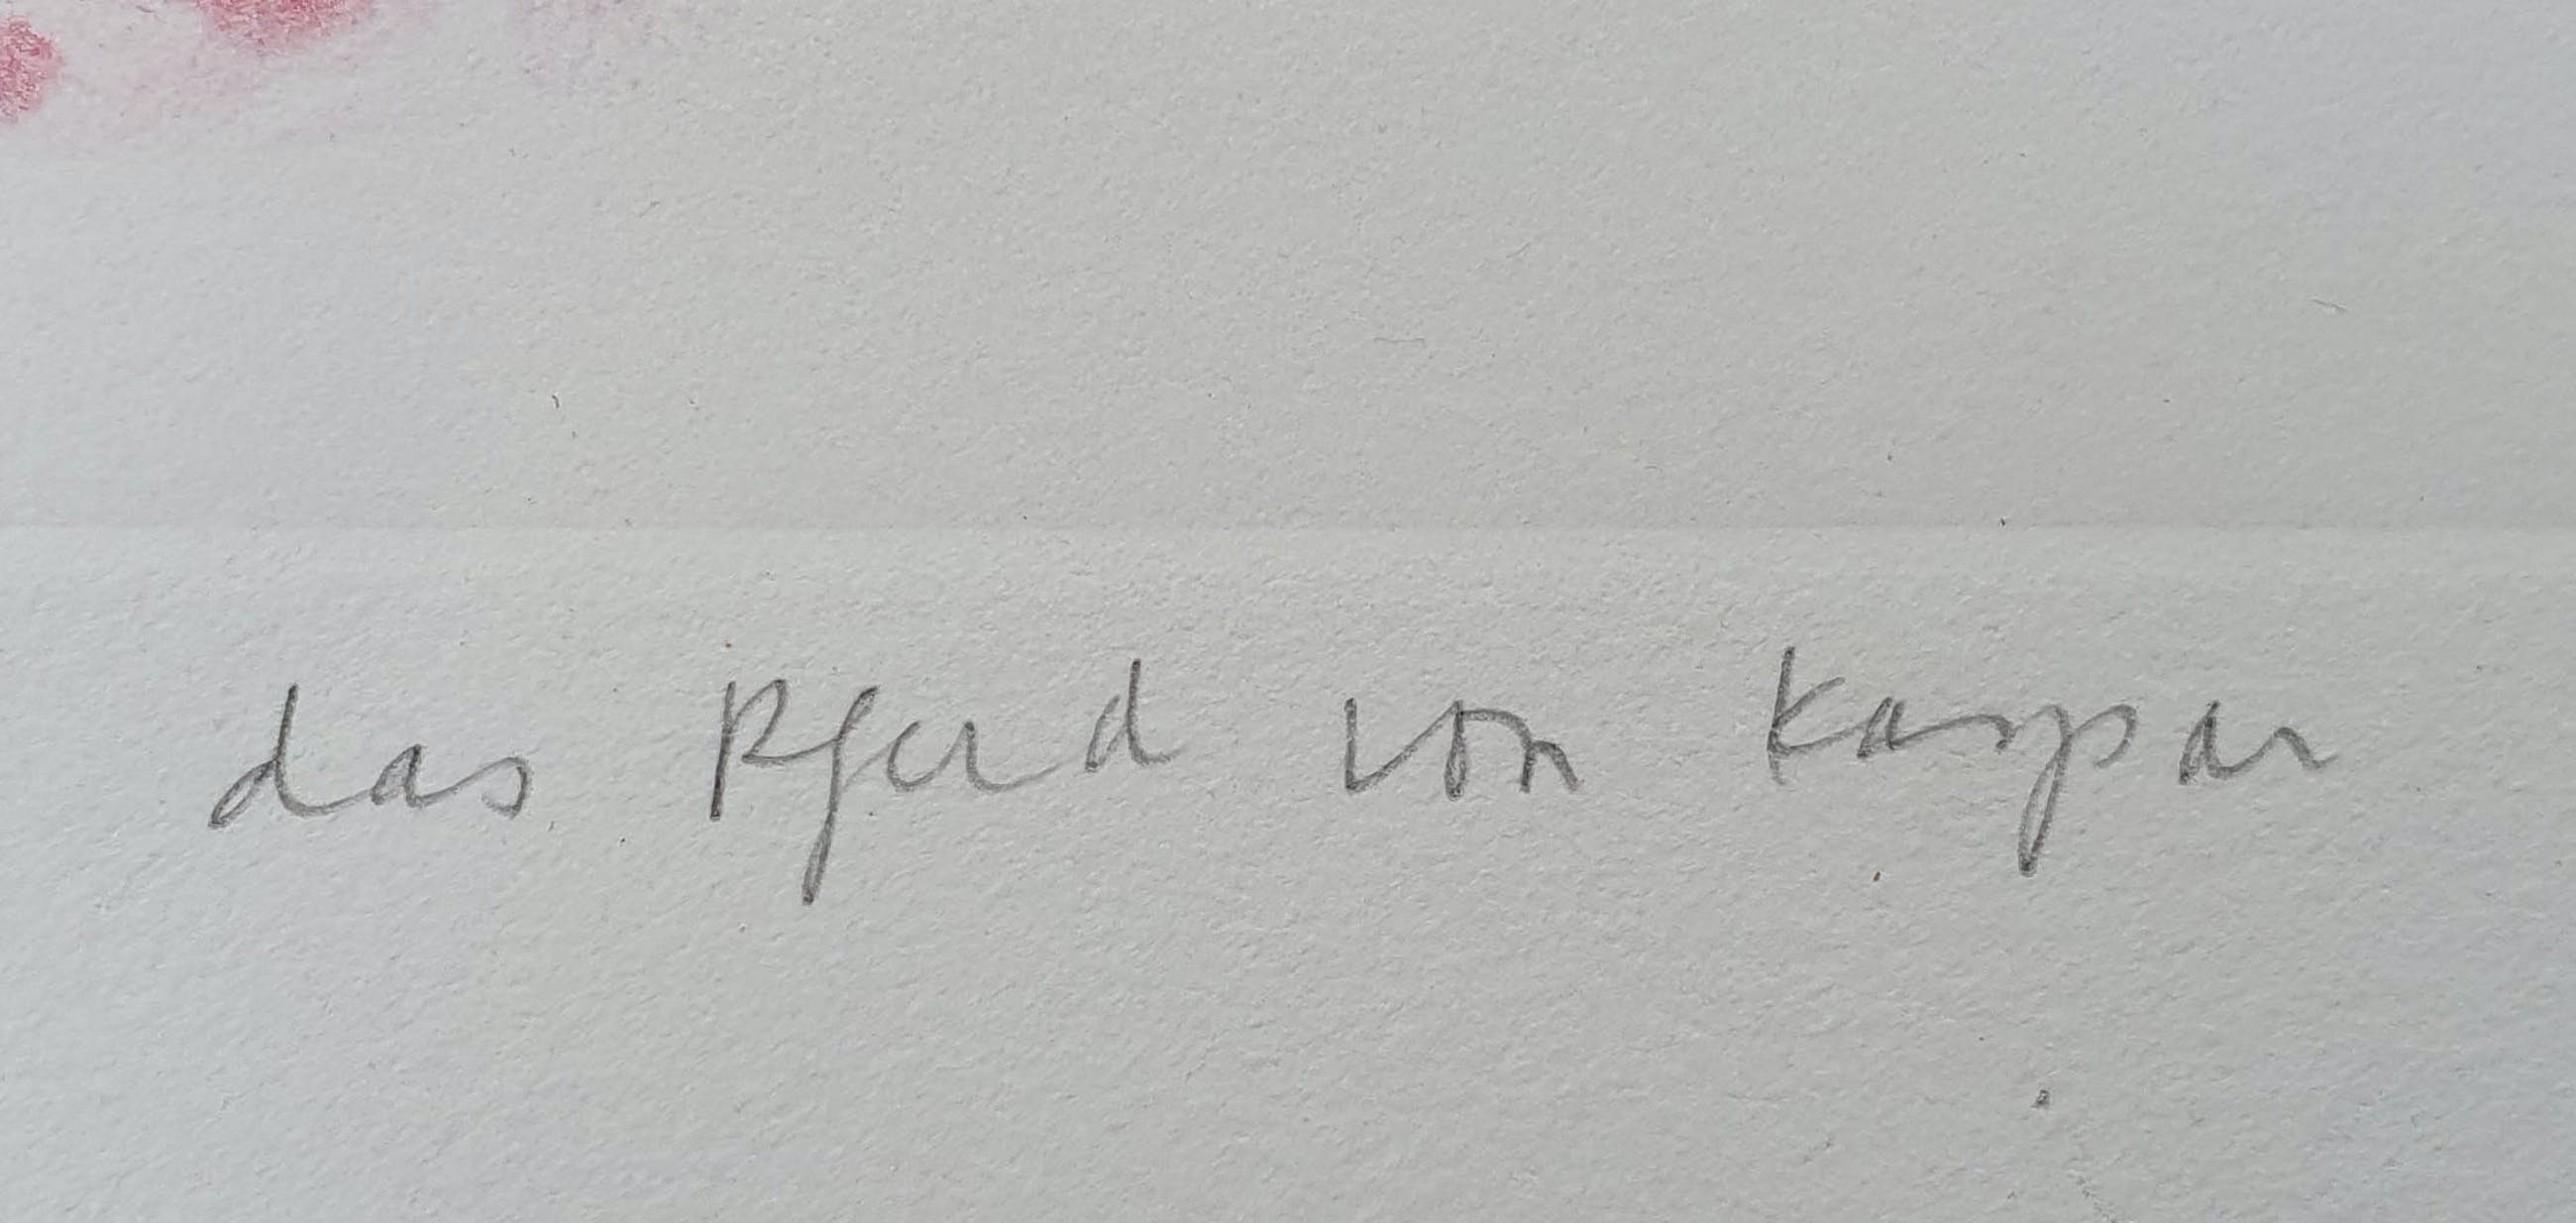 das Pferd von Kaspar